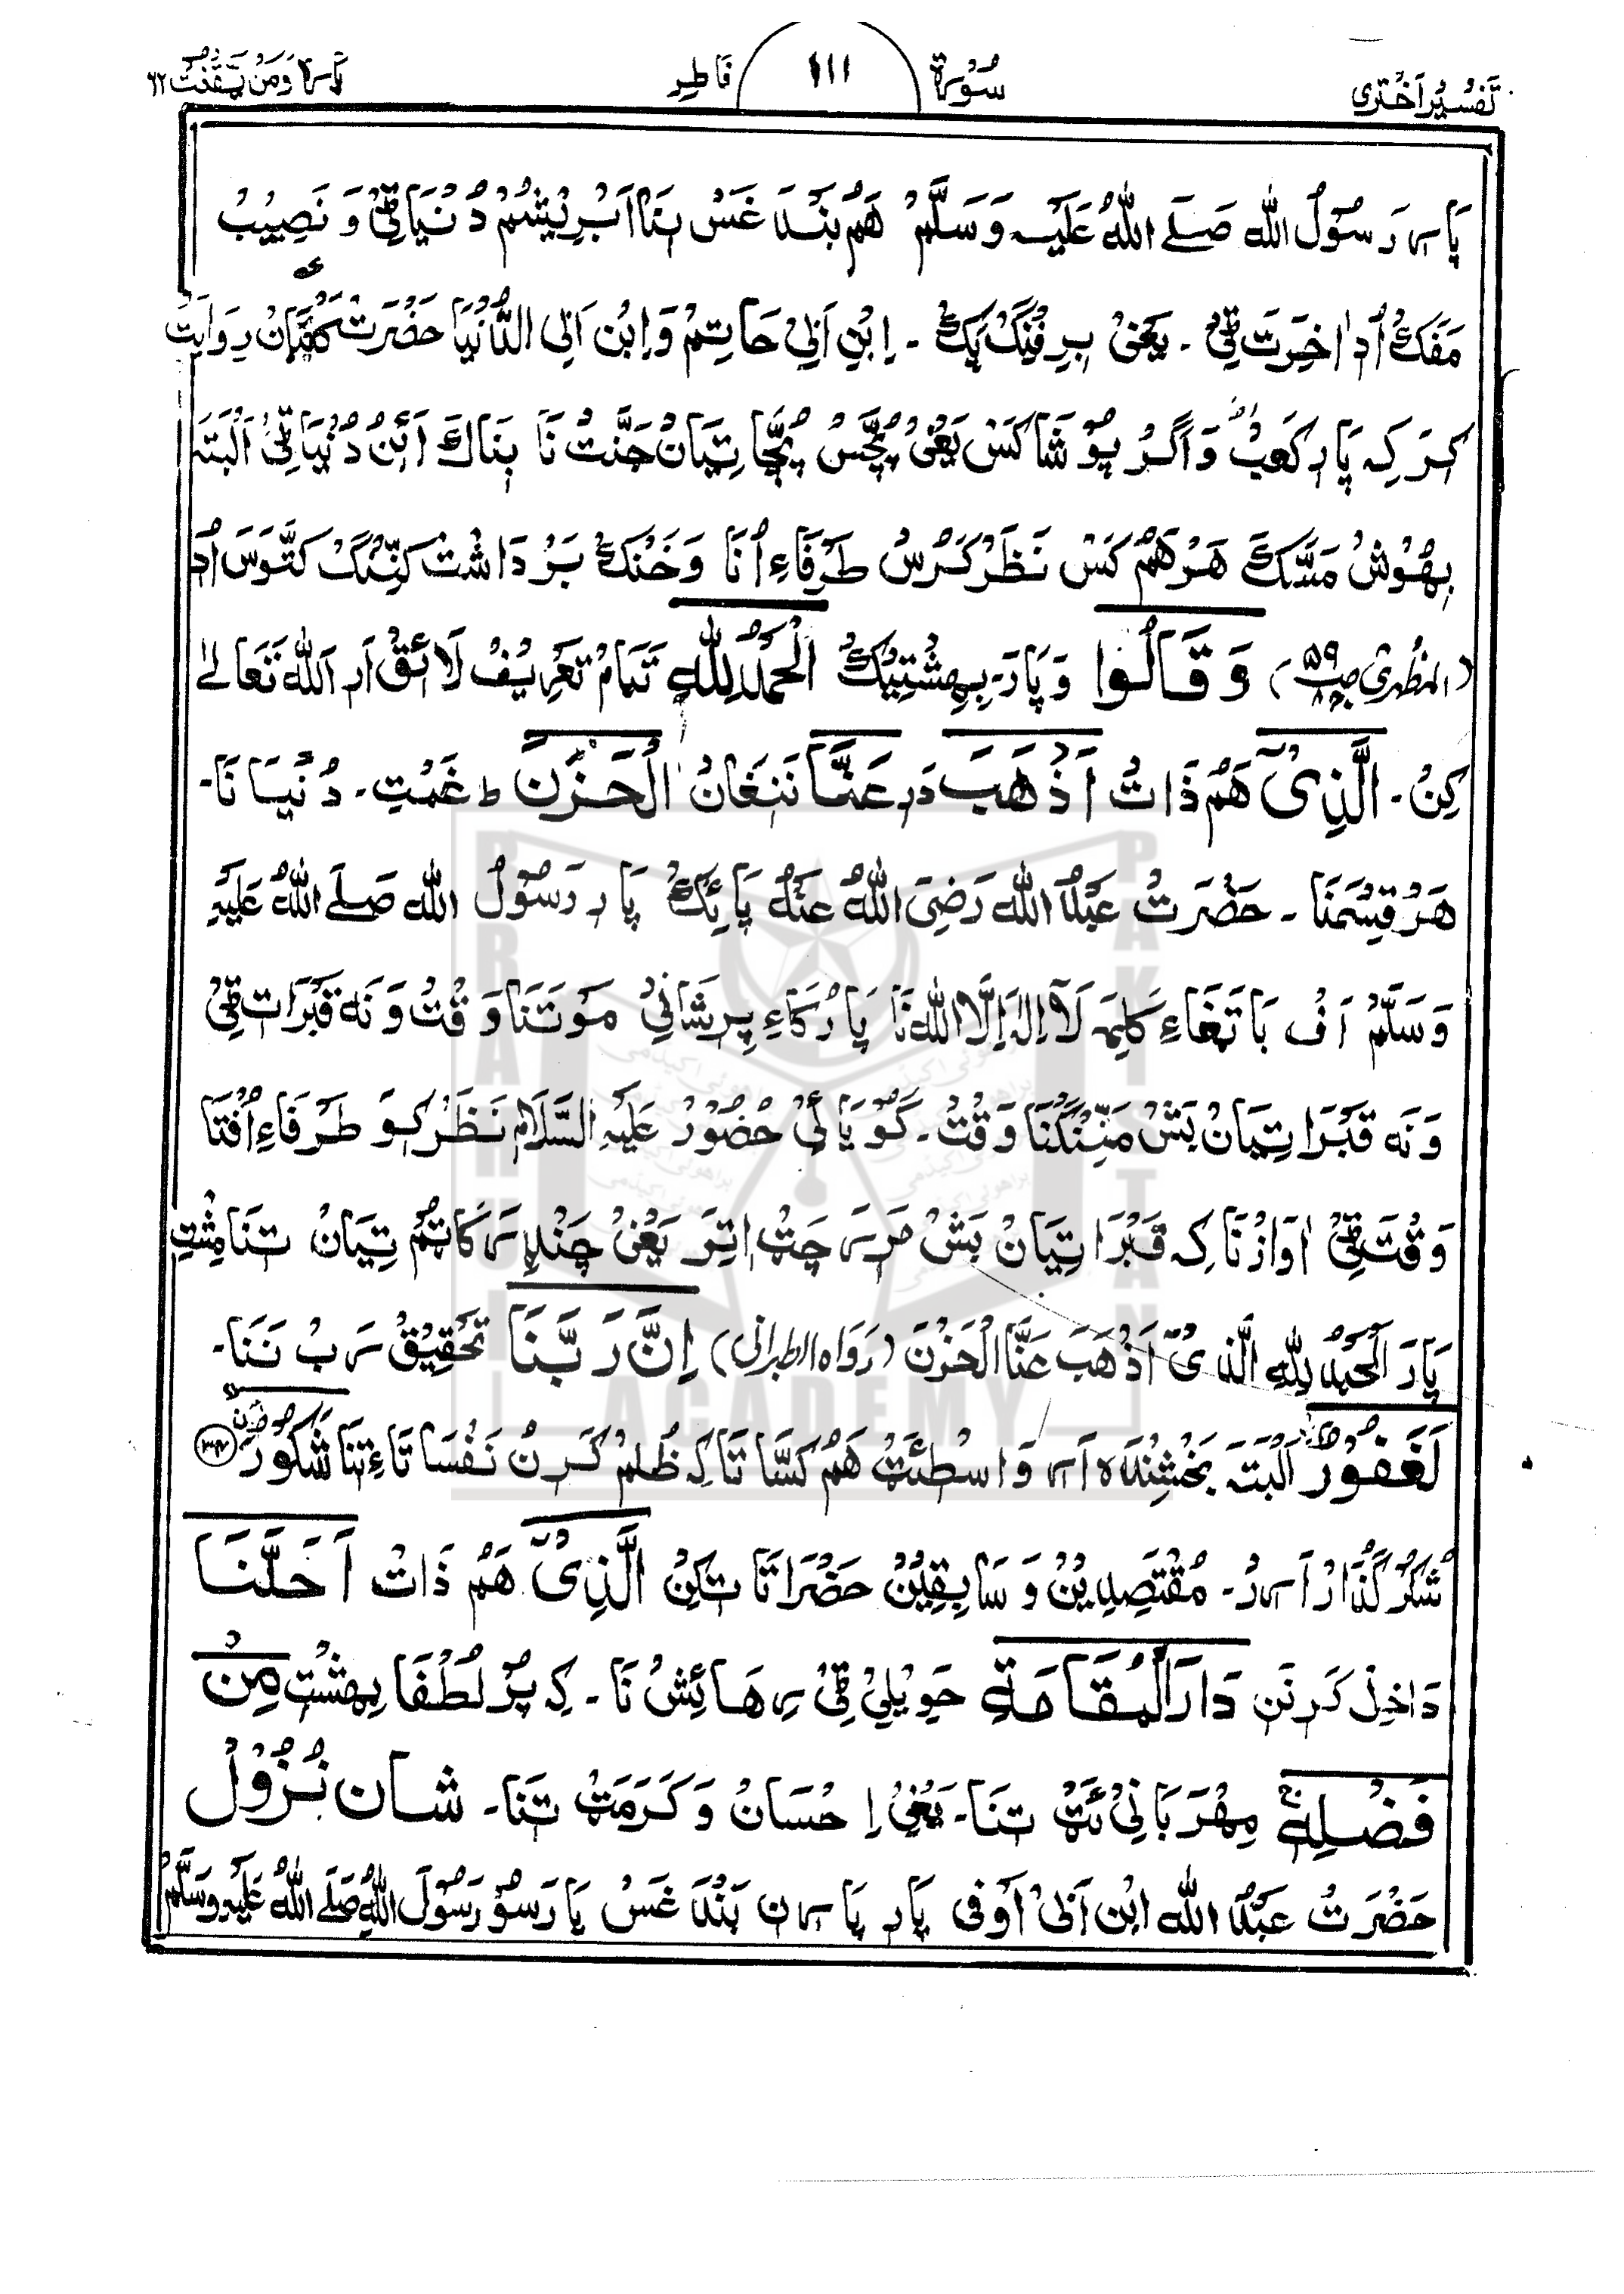 تَفسیرُ اَختری
سُوْرَة
۱۱۱
فَاطِر
پَارہ وَمَنْ یَّقْنُتْ ۲۲
پَارہ رَسُوْلُ اللہ صَلَے اللہُ عَلَیہ وَسَلَّمْ هَمْ بَندَ غَسْ بنَا اَبْرِیْشَمْ دُنْیَا ٹِیْ وَ نَصِیْبْ
مَفَکْ اُدْ اٰخِرَت ٹِیْ ۔ یَعْنِیْ بِرِفِنِّگْ پَکْ ۔ اِبْنِ اَبِیْ حَاتِمْ وَاِبْن اَبِی الدُّنْیَا حَضْرَتْ رِوَایَتْ
کَرَ کِہ پَارِ کَعَبْ وَاگَرْ پوشاکَسْ یَعْنِیْ پُچَّسْ پُچَّا تِیَانْ جَنَّتْ نَا بِنَاکْ اَیْنُ دُنْیَا ٹِیْ اَلْبَتَہ
بِہُوْش مَسَّکَ هَرْهَمْ کَسْ نَظَرْ کَرْسُ طَرْفَاءِ اُنَا وَخَنْکْ بَرْدَاشْتْ کَنِّنگ کَتَّوسَ اُدْ
(المظہری صب ۵۹ ج۸) وَقَالُوا وَپَارَ۔ بِہِشْتِیْکْ اَلْحَمْدُلِلّٰہِ تَمَامْ تَعْرِیْفْ لَائِقْ اَر اَللہ تَعَالےٰ
کِنْ ۔ الَّذِیْ هَمْ ذَاتْ اَذْهَبَ دَر عَنَّا نَنْغَانْ الْحَزَنَ ط غَمْتِ ۔ دُنْیَا نَا ۔
هَرْ قِسْمَنَا ۔ حَضْرَتْ عَبْدُ اللہ رَضِیَ اللہُ عَنْہُ پَائِکْ پَار رَسُوْلُ اللہ صَلَے اللہُ عَلَیْہِ
وَسَلَّمْ اَفْ بَاتَغَاءِ کَلِمَہ لَآ اِلٰہَ اِلَّا اللہ نَا پَارْکَاءِ پِرِشَانِیْ مَوْتَنَا وَقْتْ وَنَہ قَبْرَات ٹِیْ
وَنَہ قَبْرَا تِیَانْ بَشْ مَنِّنْگنَا وَقْتْ ۔ گَوْیَا لِیْ حُضُوْرْ عَلَیْہِ السَّلَام نَظَرْکَوْ طَرْفَاءِ اُفْتَا
وَقْتَ ٹِیْ اٰوَازْنَا کِہ قَبْرَا تِیَانْ بَشْ مَرہ چَتْ اتِرَ یَعْنِیْ چَنْڈِرہ کَاتُمْ تِیَانْ تِنَا مِشْتِ
پَارَ الْحَمْدُ لِلّٰہِ الَّذِیْ اَذْهَبَ عَنَّا الْحَزَنَ (رَوَاہ الطبرانی) اِنَّ رَبَّنَا تَحْقِیْقْ رَبْ نَنَا ۔
لَغَفُوْرٌ اَلْبَتَہ بَخْشِنْدَہ اَرہ وَاسْطَئَتْ هَمْ کَسَّا تَا کِہ ظُلْمْ کَرن نَفْسَا تَاءِ تِنَا شَکُوْرٌ ۳۴
شُکَرْ گُذَارْ اَرہ ۔ مُقْتَصِدِیْن وَ سَابِقِیْنْ حَضْرَاتَا تِکِنْ الَّذِیْ هَمْ ذَاتْ اَحَلَّنَا
دَاخِلْ کَرنَن دَارَالْمُقَامَةِ حَوِیْلِیْ ٹِیْ رِهَائِشْ نَا ۔ کِہ پُرْ لُطْفَا بِہِشْت مِنْ
فَضْلِہٖ مِهْرَبَانِیْ ئَتْ تِنَا ۔ یَعْنِیْ اِحْسَانْ وَکَرَمَتْ تِنَا ۔ شان نُزُوْل
حَضْرَتْ عَبْدُ اللہ ابْنِ اَبِیْ اَوْفٰی پَار پَارہ ن بَنْدَ غَسْ یَا رَسُوْ رَسُوْلَ اللہِ صَلَے اللہُ عَلَیْہِ وَسَلَّمْ
PAKISTAN
BRAHUI
ACADEMY
براهوئی اکیڈمی